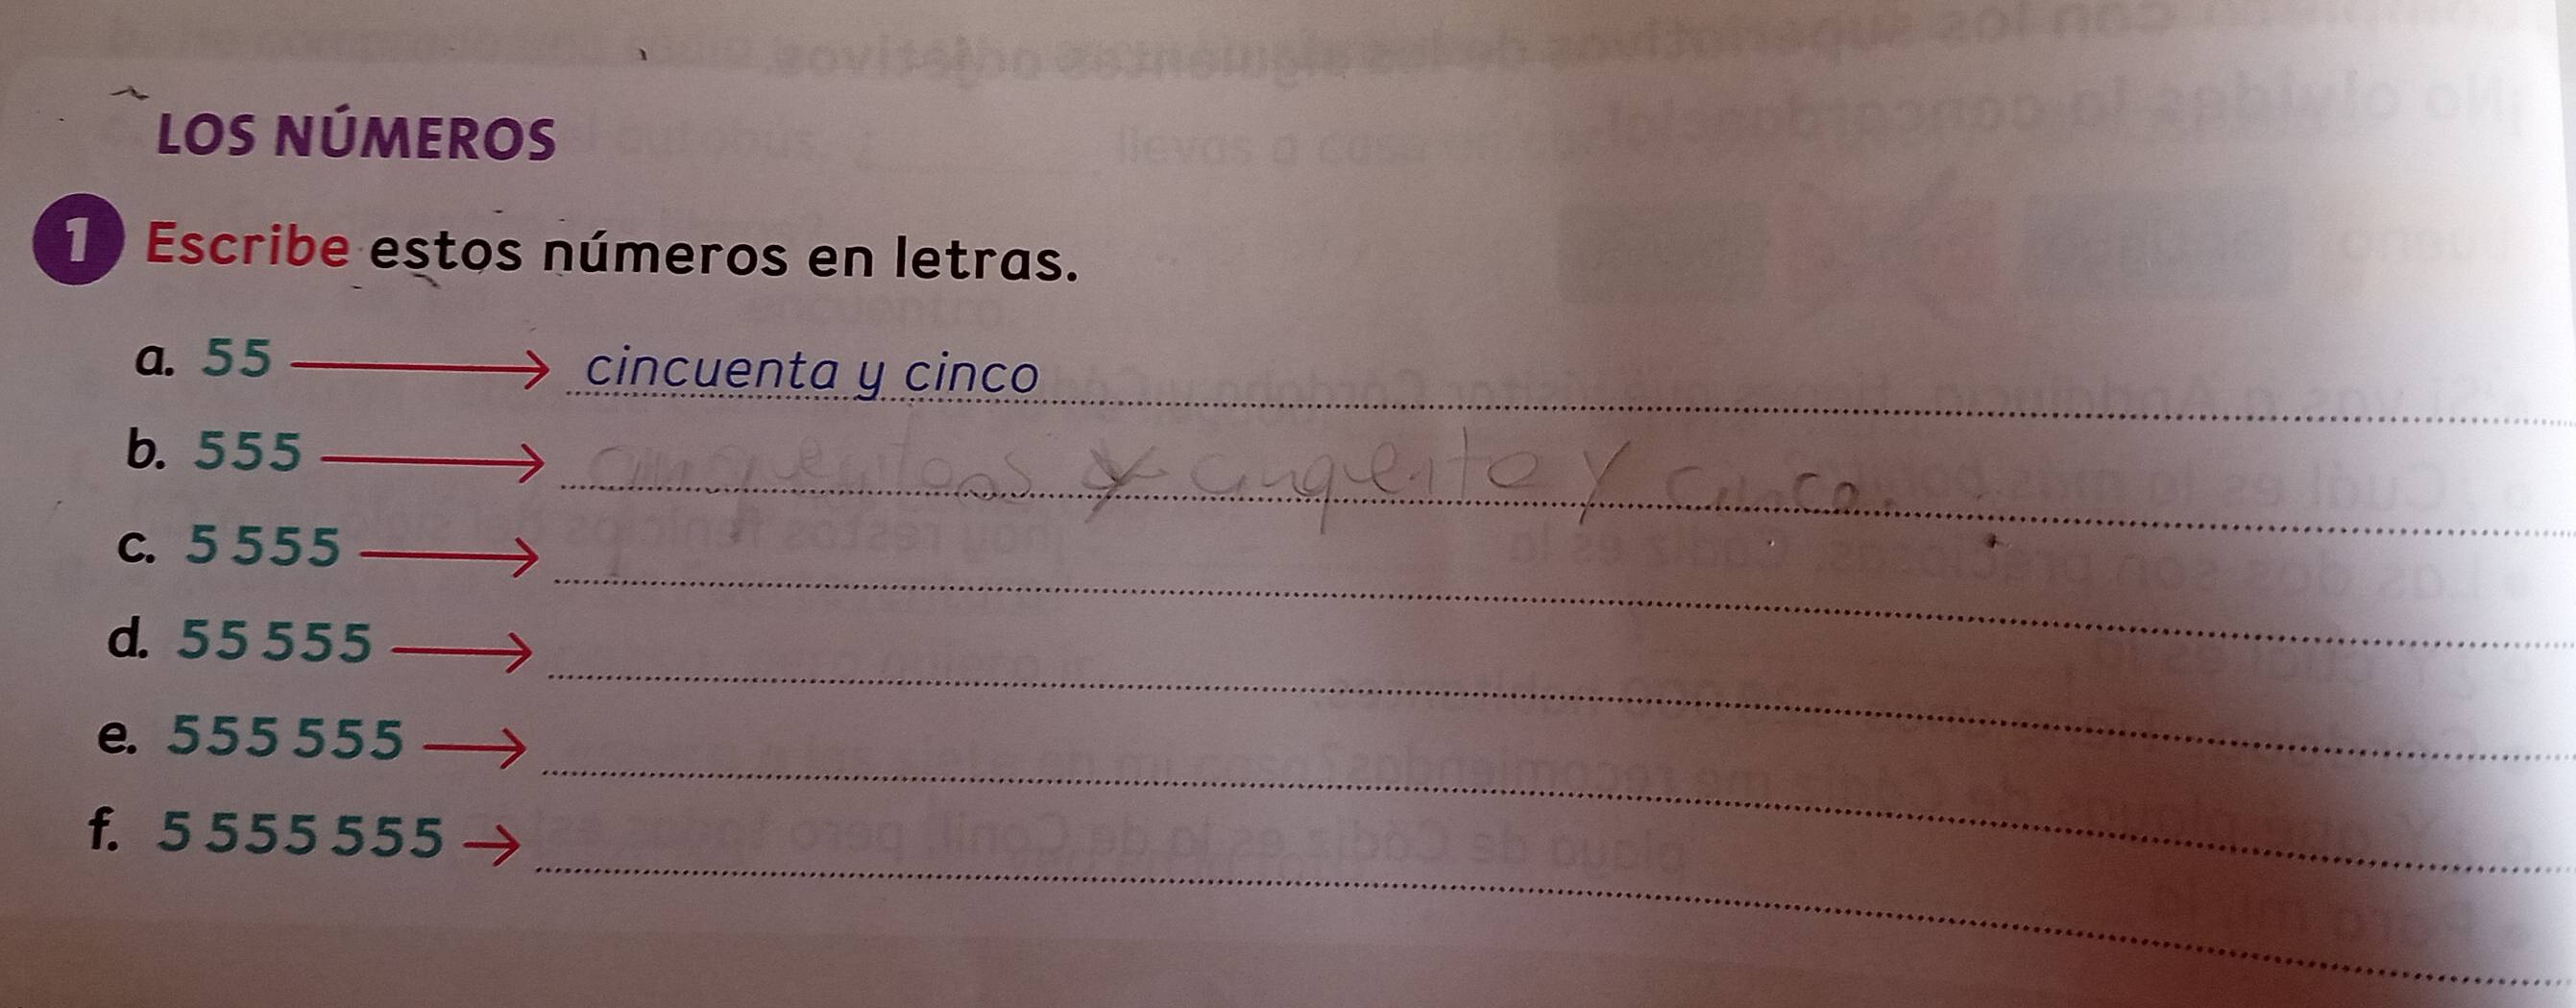 LOS NÚMEROS
1 Escribe estos números en letras.
a. 55 cincuenta y cinco
b. 555 cinquentos y cinquenta y cinco.
c. 5 555
d. 55 555
e. 555 555
f. 5 555 555